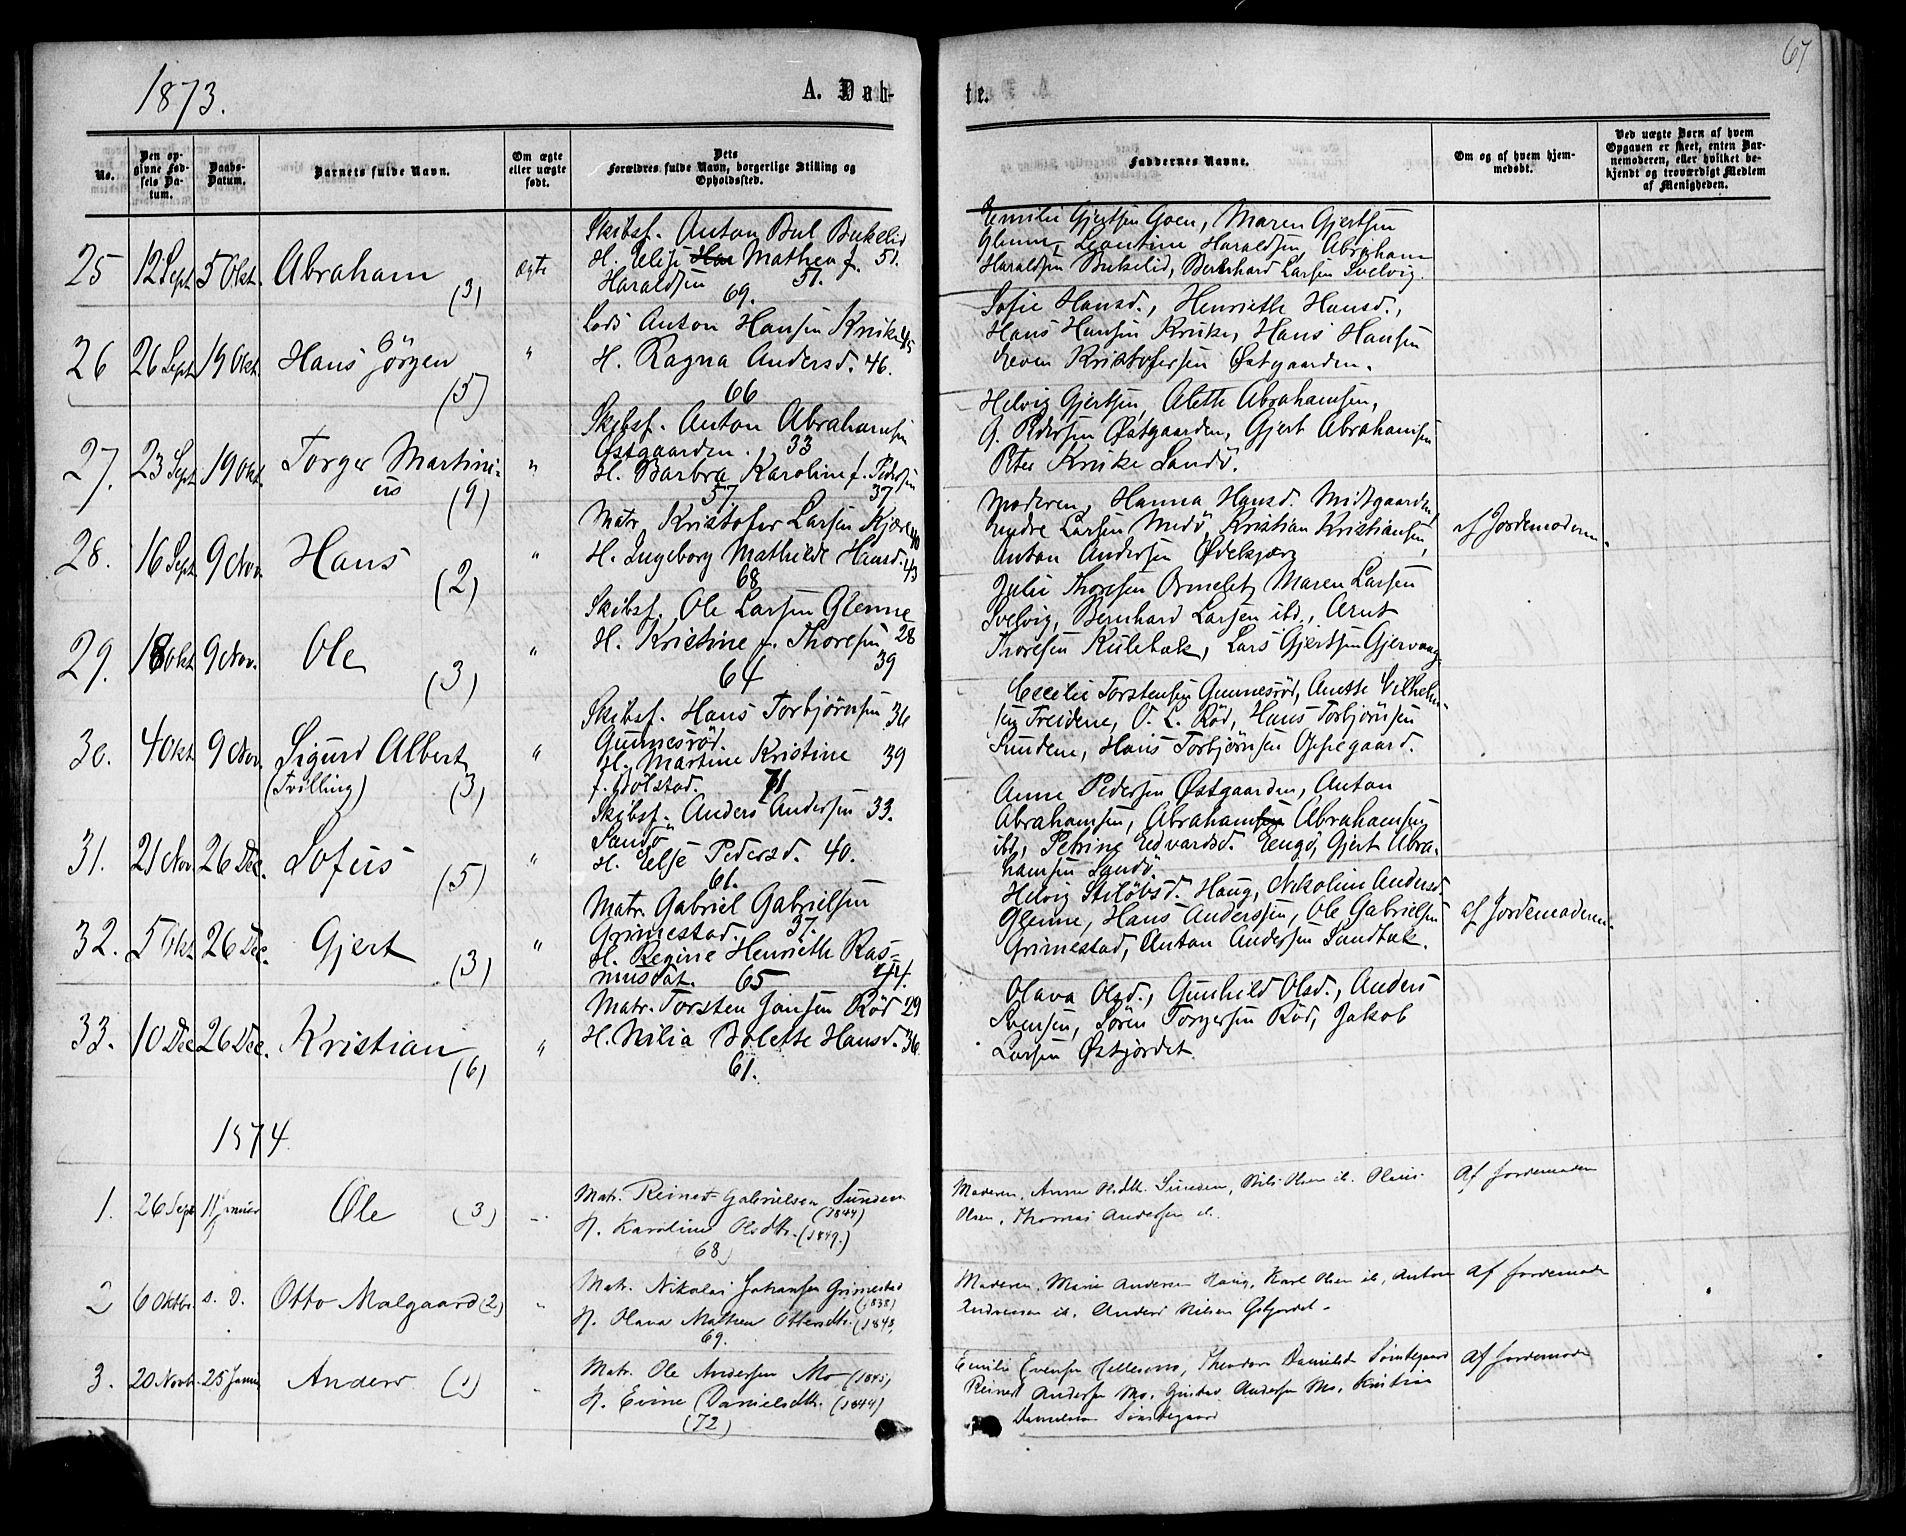 1873.
A. Daab-
te.
67
No.
Den op-
givne Fød-
sels Da-
tum.
Daabs-
Datum.
Barnets fulde Navn.
Om ægte
eller uægte
født.
Dets
Forældres fulde Navn, borgerlige Stilling og
Opholdssted.
Faddernes Navne.
Om og af hvem hjem-
medøbt.
Ved uægte Børn af hvem
Opgaven er skeet, enten Bar-
nemoderen, eller hvilket be-
kjendt og troværdigt Medlem
af Menigheden.
25 12 Sept 5 Okt. Abraham (3) ægte
Skibsf. Anton Bul Bukelid
H. Elise Mathea f. 51.
Haraldsen 51.
69.
Emilie Gjertsen Goen, Maren Gjertsen
Glenne, Leontine Haraldsen, Abraham
Haraldsen Bukelid, Bernhard Larsen Svelvig.
26 26 Sept 19 Okt. Hans Jörgen (5) "
Lods Anton Hansen Kruke 45
H. Ragna Andersd. 46.
66
Sofie Hansd., Henriette Hansd.,
Hans Hansen Kruke, Hans Hansen
Even Kristofersen Østgaarden.
27. 23 Sept 19 Okt. Torger Martini-
us (9) "
Skibsf. Anton Abrahamsen
Østgaarden. 33
H. Barbra Karoline f. Pedersen
57 37
Helvig Gjertsen, Alette Abrahamsen,
G. Pedersen Østgaarden, Gjert Abrahamsen
Peter Kruke Sandö.
28. 16 Sept 9 Nov. Hans (2) "
Matr. Kristofer Larsen Kjære 40
H. Ingeborg Mathilde Hansd. 43
68
Moderen, Hanna Hansd. Midtgaarden,
Andre Larsen Medö, Kristian Kristiansen,
Anton Andersen Ødekjær
af Jordemoderen.
29. 18 Okt 9 Nov. Ole (3) "
Skibsf. Ole Larsen Glenne
H. Kristine f. Thoresen 28
64 39
Julie Thoresen Ormelet, Maren Larsen
Svelvig, Bernhard Larsen ibd., Arnt
Thoresen Kulebæk, Lars Gjertsen Gjervaag
30. 4 Okt 9 Nov. Sigurd Albert
(Tvilling) (3) "
Skibsf. Hans Torbjörnsen 36
Gunnesröd.
H. Martine Kristine 39
f. Holstad. 71
Cecilie Torstensen Gunnesröd, Anette Vilhelm-
sen Treidene, O. L. Röd, Hans Torbjörnsen
Sundene, Hans Torbjörnsen Oppegaard.
31. 21 Nov. 26 Dec. Sofus (5) "
Skibsf. Anders Andersen 33.
Sandö
H. Else Pedersd. 40.
61.
Anne Pedersen Østgaarden, Anton
Abrahamsen, Abraham Abrahamsen
ibd, Petrine Edvardsd. Engö, Gjert Abra-
hamsen Sandö.
32. 5 Okt 26 Dec. Gjert (3) "
Matr. Gabriel Gabrielsen
Grimestad. 37.
H. Regine Henriette Ras-
musdat. 65 44.
Helvig Haug, Nikoline Andersd.
Glenne, Hans Anderssen, Ole Gabrielsen
Grimestad, Anton Andersen Sandbæk.
af Jordemoderen.
33. 10 Dec 26 Dec. Kristian (6) "
Matr. Torsten Jansen Röd 29
H. Nilia Bolette Hansd. 36
61.
Olava Olsd., Gunhild Olsd., Anders
Svensen, Sören Torgersen Röd, Jakob
Larsen Østjordet.
1874.
1. 26 Sept 11 Januar Ole (3)
Matr. Reinert Gabrielsen Sundene
(1844)
H. Karoline Olsdtr. (1849.)
(68)
Moderen, Anne Olsdtr. Sundene, Nils Olsen ib. Olaus
Olsen, Thomas Andersen ib.
Af Jordemoder
2 6 Oktbr. s. D. Otto Molgaard (2) "
Matr. Nikolai Johansen Grimestad
(1838)
H. Olava Mathea Ottersdtr. (1843)
69.
Moderen, Marie Andersen Haug, Karl Olsen ib, Anton
Andreasen ib. Anders Nilsen
Af Jordemoder
3. 20 Novb. 25 Januar Anders (1) "
Matr. Ole Andersen Mo (1845)
H. Evine Danielsdtr. (1844)
(72)
Emilie Evensen Hellesmo, Theodora Danielsd. Sønstegaard
Reinert Andersen Mo. Gustav Andersen Mo. Kristian
Danielsen Sønstegaard
Af Jordemoder